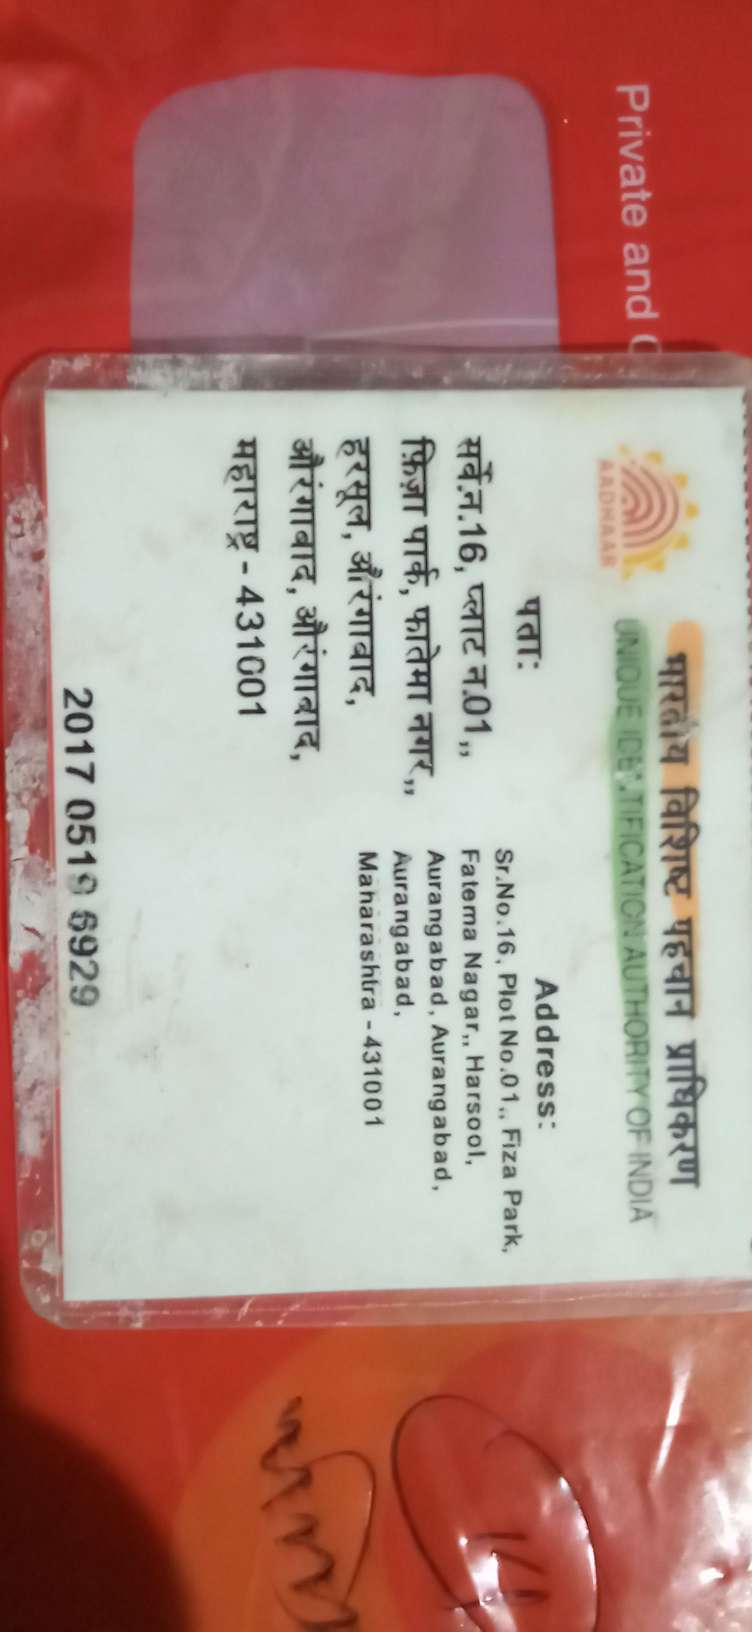 Private and
भारतीय विशिष्ट पहचान प्राधिकरण
UNIQUE IDENTIFICATION AUTHORITY OF INDIA
AADHAAR
पता:
सर्वे.न.16, प्लाट न.01,,
फ़िज़ा पार्क, फातेमा नगर,,
हरसूल, औरंगाबाद,
औरंगाबाद, औरंगाबाद,
महाराष्ट्र - 431001
Address:
Sr.No.16, Plot No.01,, Fiza Park,
Fatema Nagar,, Harsool,
Aurangabad, Aurangabad,
Aurangabad,
Maharashtra - 431001
2017